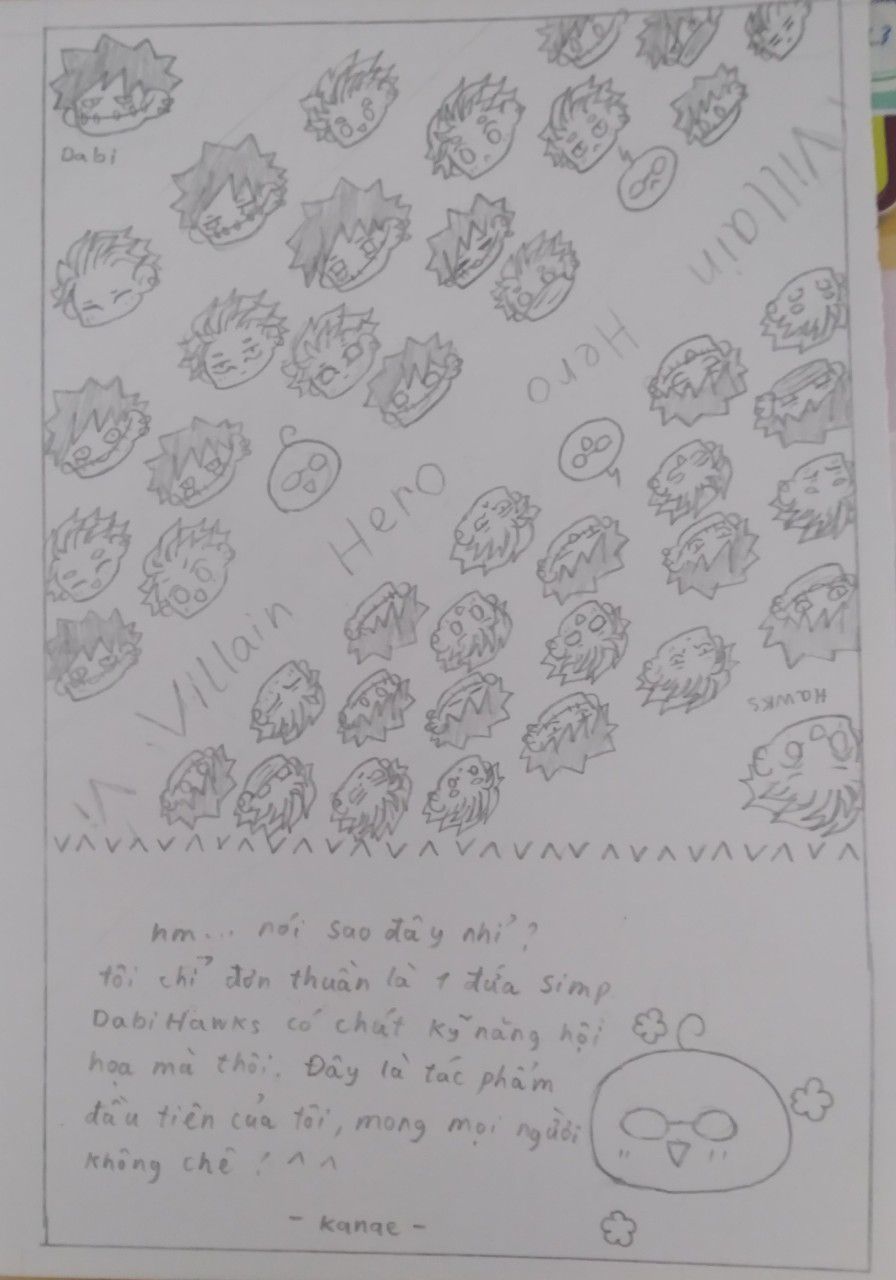 Dabi
Villain
Hero
Hero
Villain
Hawks
hm... nói sao đây nhỉ?
tôi chỉ đơn thuần là 1 đứa simp
DabiHawks có chút kỹ năng hội
họa mà thôi. Đây là tác phẩm
đầu tiên của tôi, mong mọi người
không chê! ^^
- Kanae -